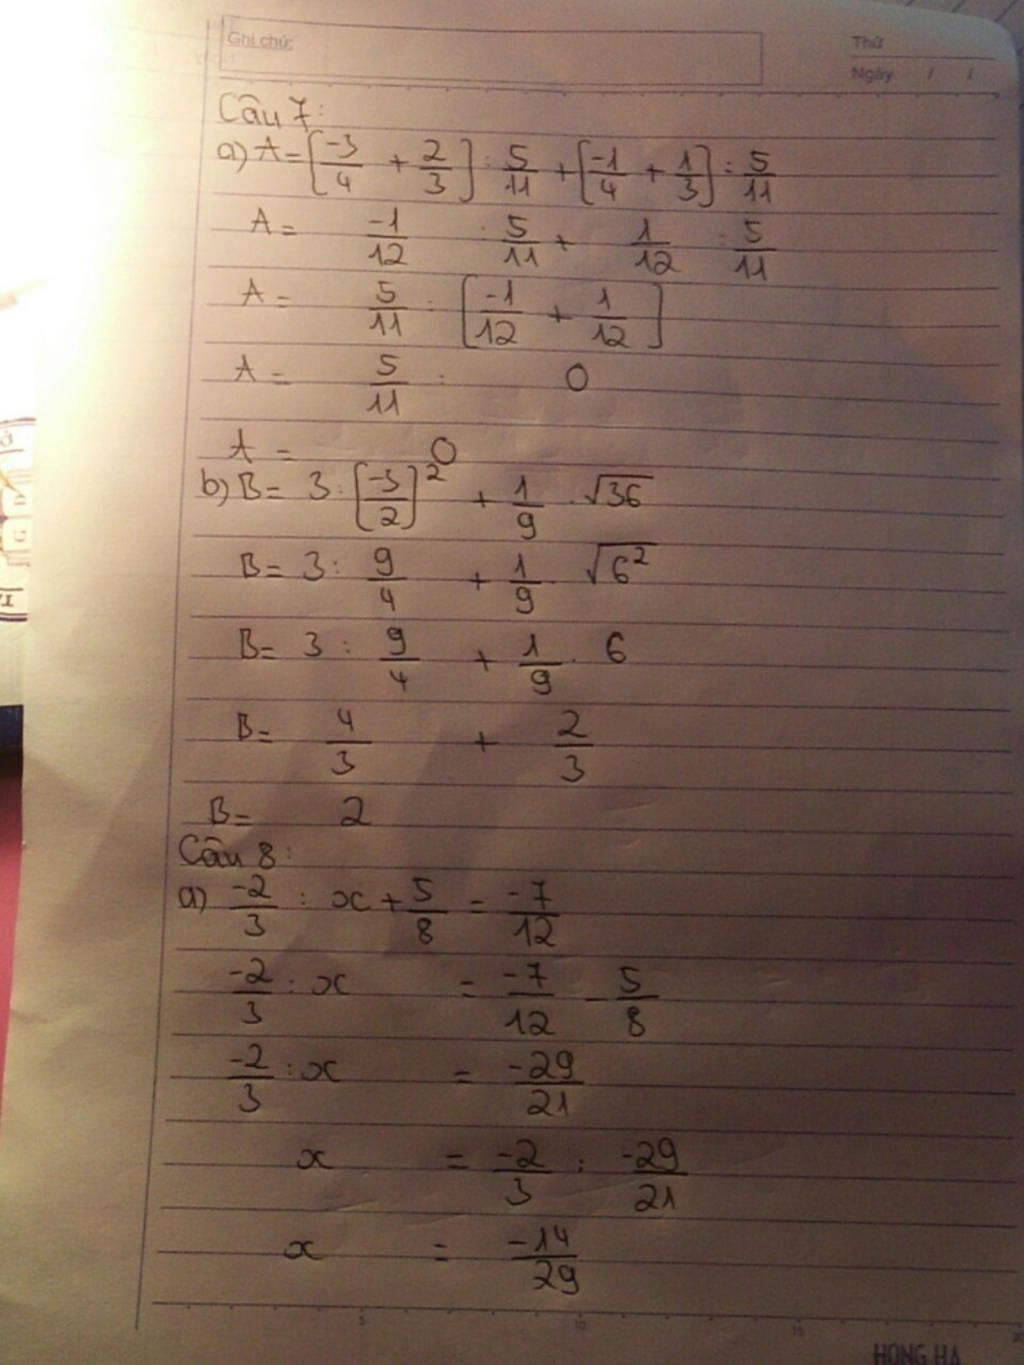 Ghi chú:
Thứ
Ngày / /
Câu 7:
a) A = [-3/4 + 2/3] : 5/11 + [-1/4 + 1/3] : 5/11
A = -1/12 : 5/11 + 1/12 : 5/11
A = 5/11 : [-1/12 + 1/12]
A = 5/11 : 0
A = 0
b) B = 3 : [-3/2]² + 1/9 . √36
B = 3 : 9/4 + 1/9 . √6²
B = 3 : 9/4 + 1/9 . 6
B = 4/3 + 2/3
B = 2
Câu 8:
a) -2/3 : x + 5/8 = -7/12
-2/3 : x = -7/12 - 5/8
-2/3 : x = -29/21
x = -2/3 : -29/21
x = -14/29
5 10 15 20
HONG HA